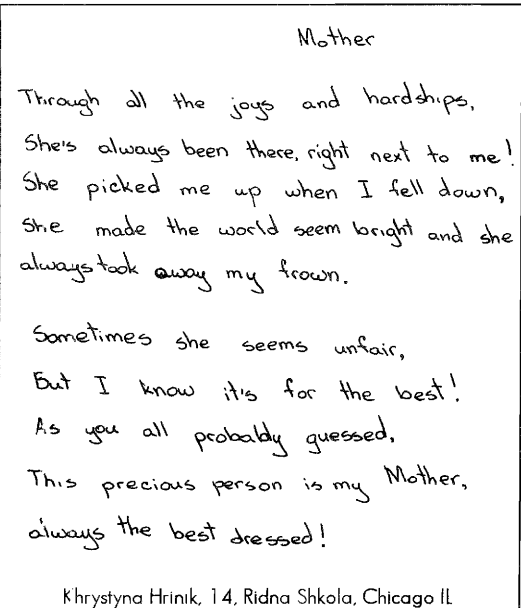 Mother
Through all the joys and hardships,
She's always been there, right next to me!
She picked me up when I fell down,
She made the world seem bright and she
always took away my frown.
Sometimes she seems unfair,
But I know it's for the best!
As you all probably guessed,
This precious person is my Mother,
always the best dressed!
Khrystyna Hrinik, 14, Ridna Shkola, Chicago IL